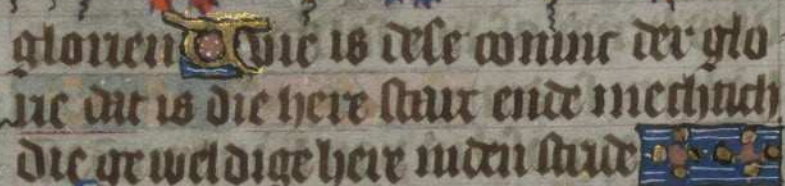 glorien Wie is dese coninc der glo
rie dat is die here starc ende mechtich
die geweldige here inden stride